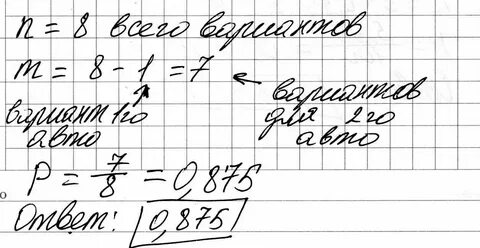 n = 8 всего вариантов
m = 8 - 1 = 7
вариант 1го авто
вариантов для 2го авто
P = 7/8 = 0,875
Ответ: 0,875